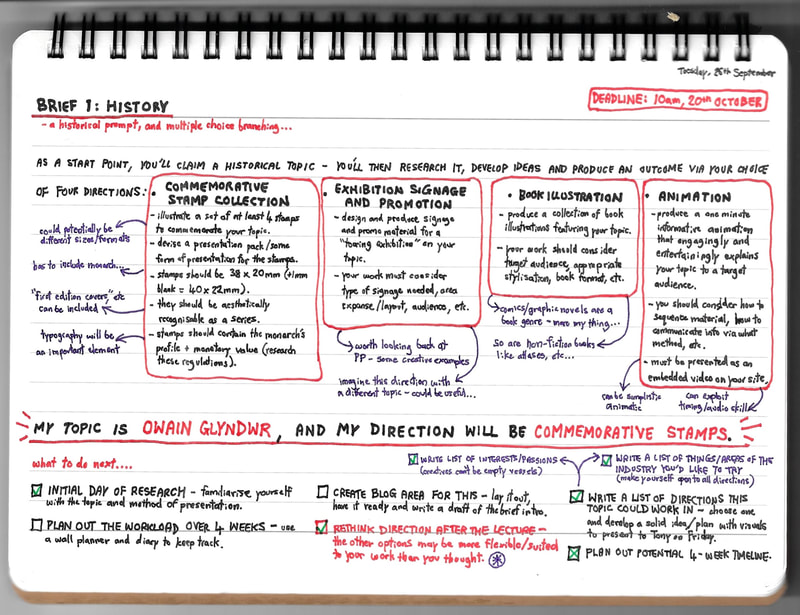 Tuesday, 26th September
BRIEF 1: HISTORY
DEADLINE: 10am, 20th OCTOBER
- a historical prompt, and multiple choice branching...
AS A START POINT, YOU'LL CLAIM A HISTORICAL TOPIC - YOU'LL THEN RESEARCH IT, DEVELOP IDEAS AND PRODUCE AN OUTCOME VIA YOUR CHOICE
OF FOUR DIRECTIONS:
• COMMEMORATIVE
STAMP COLLECTION
- illustrate a set of at least 4 stamps
to commemorate your topic.
- devise a presentation pack/some
form of presentation for the stamps.
- stamps should be 38 x 20mm (+1mm
blank = 40 x 22mm).
- they should be aesthetically
recognisable as a series.
- stamps should contain the monarch's
profile + monetary value (research
these regulations).
could potentially be
different sizes/formats
has to include monarch...
"first edition covers," etc
can be included
typography will be
an important element
• EXHIBITION SIGNAGE
AND PROMOTION
- design and produce signage
and promo material for a
"touring exhibition" on your
topic.
- your work must consider
type of signage needed, area
expanse/layout, audience, etc.
worth looking back at
PP - some creative examples
imagine this direction with
a different topic - could be useful...
• BOOK ILLUSTRATION
- produce a collection of book
illustrations featuring your topic.
- your work should consider
target audience, appropriate
stylisation, book format, etc.
comics/graphic novels are a
book genre - more my thing...
so are non-fiction books
like atlases, etc...
• ANIMATION
- produce a one minute
informative animation
that engagingly and
entertainingly explains
your topic to a target
audience.
- you should consider how to
sequence material, how to
communicate info via what
method, etc.
- must be presented as an
embedded video on your site.
can be simplistic
animatic
can exploit
timing/audio skill
MY TOPIC IS OWAIN GLYNDWR, AND MY DIRECTION WILL BE COMMEMORATIVE STAMPS.
what to do next....
WRITE LIST OF INTERESTS/PASSIONS
(creatives can't be empty vessels)
WRITE A LIST OF THINGS/AREAS OF THE
INDUSTRY YOU'D LIKE TO TRY
(make yourself open to all directions)
INITIAL DAY OF RESEARCH - familiarise yourself
with the topic and method of presentation.
PLAN OUT THE WORKLOAD OVER 4 WEEKS - use
a wall planner and diary to keep track.
CREATE BLOG AREA FOR THIS - lay it out,
have it ready and write a draft of the brief intro.
RETHINK DIRECTION AFTER THE LECTURE -
the other options may be more flexible/suited
to your work than you thought. *
WRITE A LIST OF DIRECTIONS THIS
TOPIC COULD WORK IN - choose one
and develop a solid idea/plan with visuals
to present to Tony on Friday.
PLAN OUT POTENTIAL 4-WEEK TIMELINE.